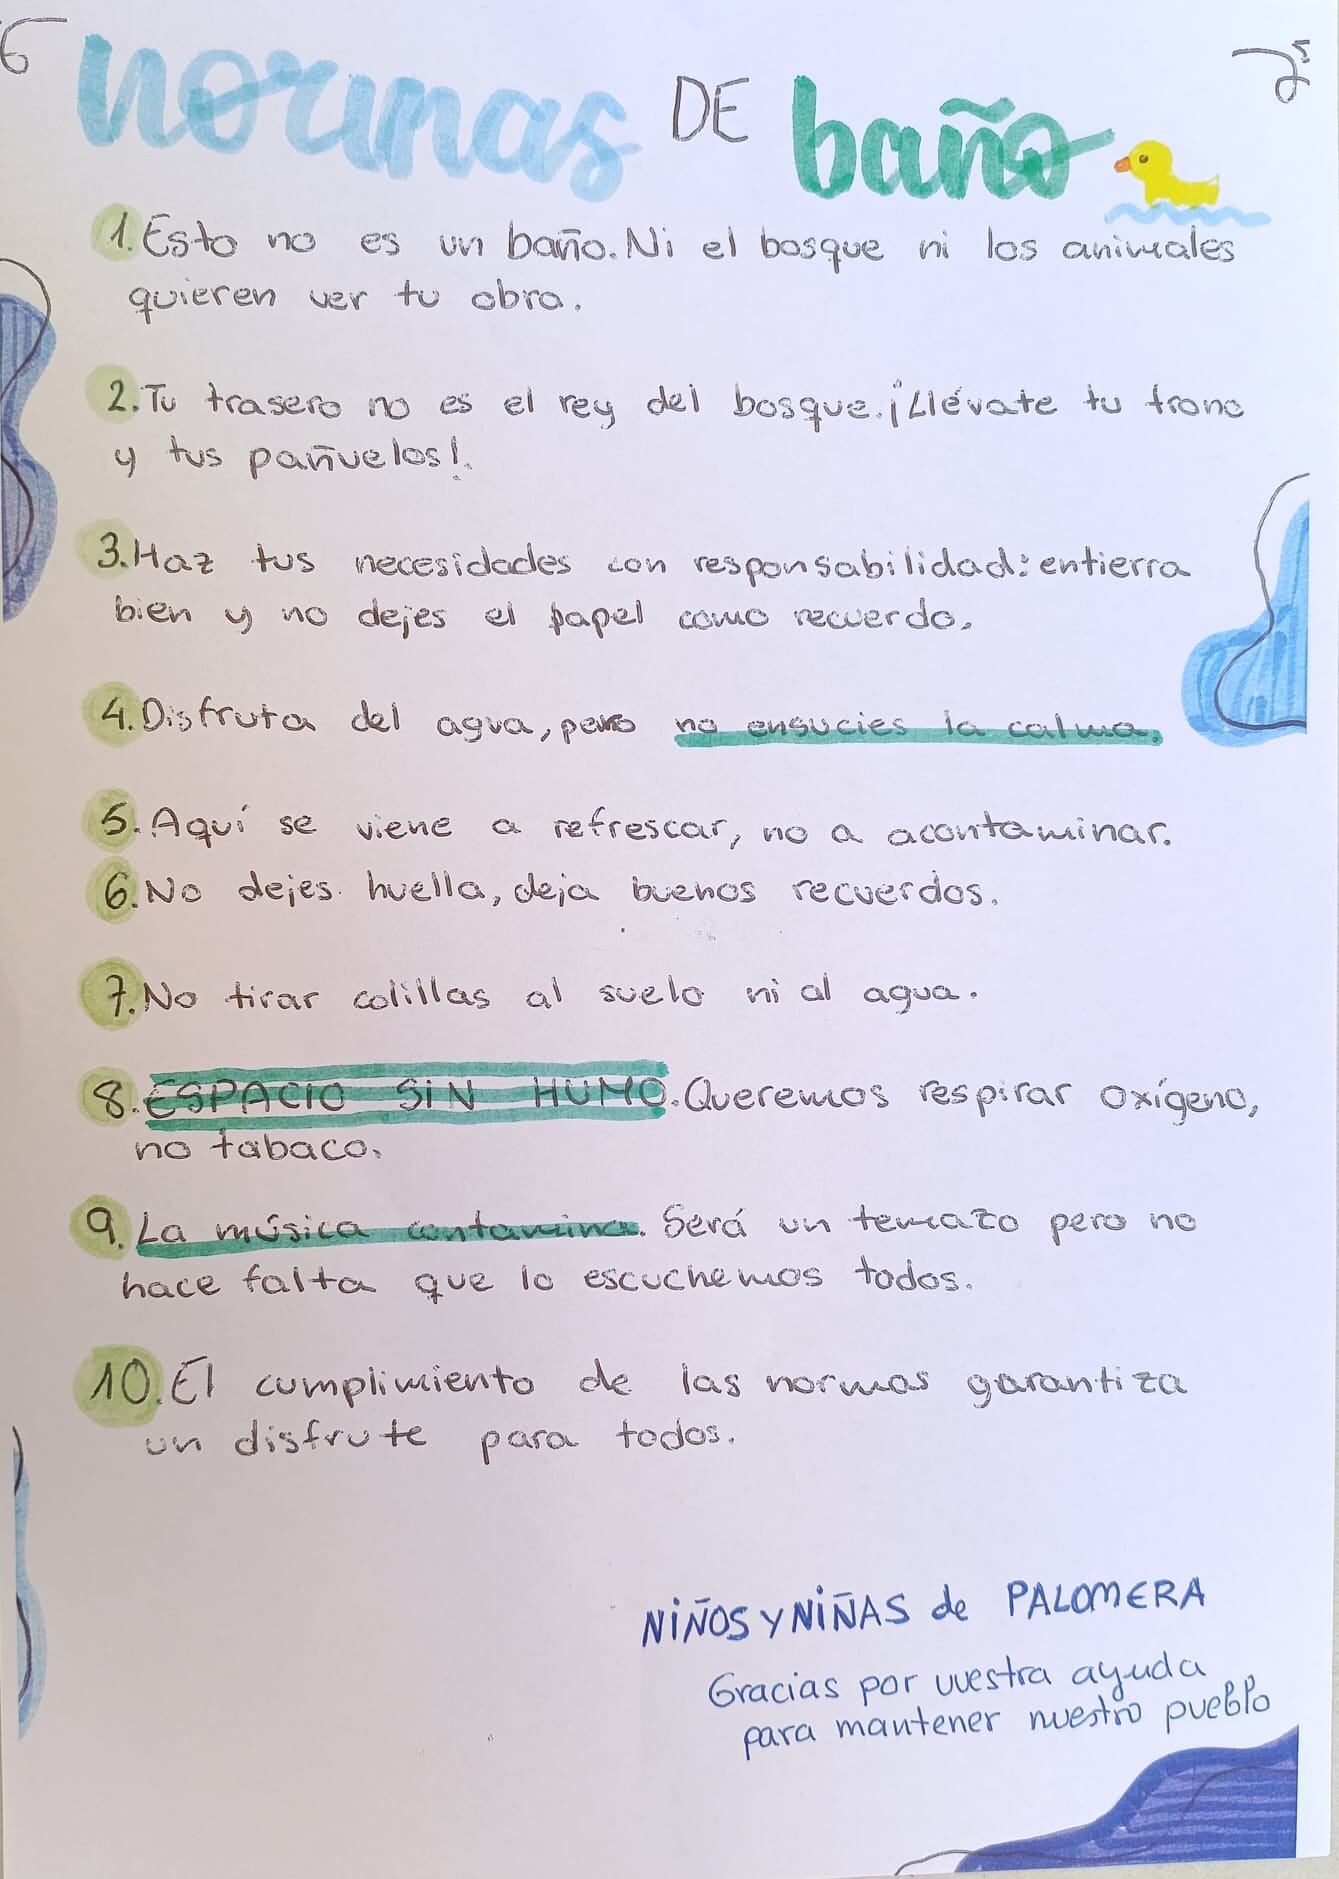 normas DE baño
1. Esto no es un baño. Ni el bosque ni los animales
quieren ver tu obra.
2. Tu trasero no es el rey del bosque. ¡Llévate tu trono
y tus pañuelos!.
3. Haz tus necesidades con responsabilidad: entierra
bien y no dejes el papel como recuerdo.
4. Disfruta del agua, pero no ensucies la calma.
5. Aquí se viene a refrescar, no a acontaminar.
6. No dejes huella, deja buenos recuerdos.
7. No tirar colillas al suelo ni al agua.
8. ESPACIO SIN HUMO. Queremos respirar oxígeno,
no tabaco.
9. La música contamina. Será un temazo pero no
hace falta que lo escuchemos todos.
10. El cumplimiento de las normas garantiza
un disfrute para todos.
NIÑOS Y NIÑAS de PALOMERA
Gracias por vuestra ayuda
para mantener nuestro pueblo